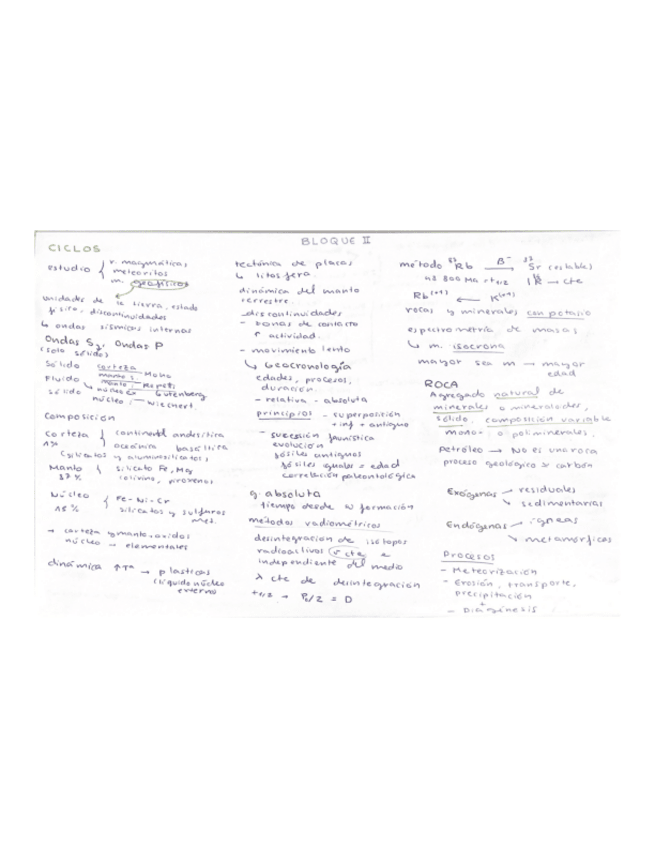 BLOQUE II
CICLOS
estudio { r. magmáticas
meteoritos
m. geofísicos
unidades de la tierra, estado
físico, discontinuidades
↳ ondas sísmicas internas
Ondas S, Ondas P
(solo sólido)
Sólido corteza
Moho
Fluido manto
Repetti
sólido núcleo Gutenberg
núcleo i → Wiechert.
Composición
Corteza } continental andesítica
1% oceánica basáltica
(silicatos y aluminosilicatos)
Manto { silicato Fe, Mg
(olivino, piroxenos
Núcleo { Fe-Ni-Cr
silicatos y sulfuros
met.
→ corteza y manto, oxidos
núcleo → elementales
dinámica ↑Tª → plásticas
(líquido núcleo
externo)
tectónica de placas
↳ litosfera.
dinámica del manto
terrestre.
- discontinuidades
- zonas de contacto
actividad.
- movimiento lento
↳ Geocronología
edades, procesos,
duración.
- relativa - absoluta
principios - superposición
+ inf = antiguo
- sucesión faunística
evolución
fósiles antiguos
fósiles iguales = edad
correlación paleontológica
g. absoluta
tiempo desde su formación
métodos radiométricos
desintegración de isótopos
radioactivos v cte e
independiente del medio
λ cte de desintegración
t1/2 → P0/2 = D
método 87Rb β⁻→ 87Sr (estable)
48 800 Ma = t1/2
→ cte
Rb(+1) ← K(+1)
rocas y minerales con potasio
espectrometría de masas
↳ m. isocrona
mayor sea m → mayor
edad
ROCA
Agregado natural de
minerales o mineraloides,
sólido, composición variable
mono- o poliminerales.
Petróleo → No es una roca
proceso geológico ≠ carbón
Exógenas → residuales
↘ sedimentarias
Endógenas → ígneas
↘ metamórficas
Procesos
- Meteorización
- Erosión, transporte,
precipitación
+
- Diagénesis